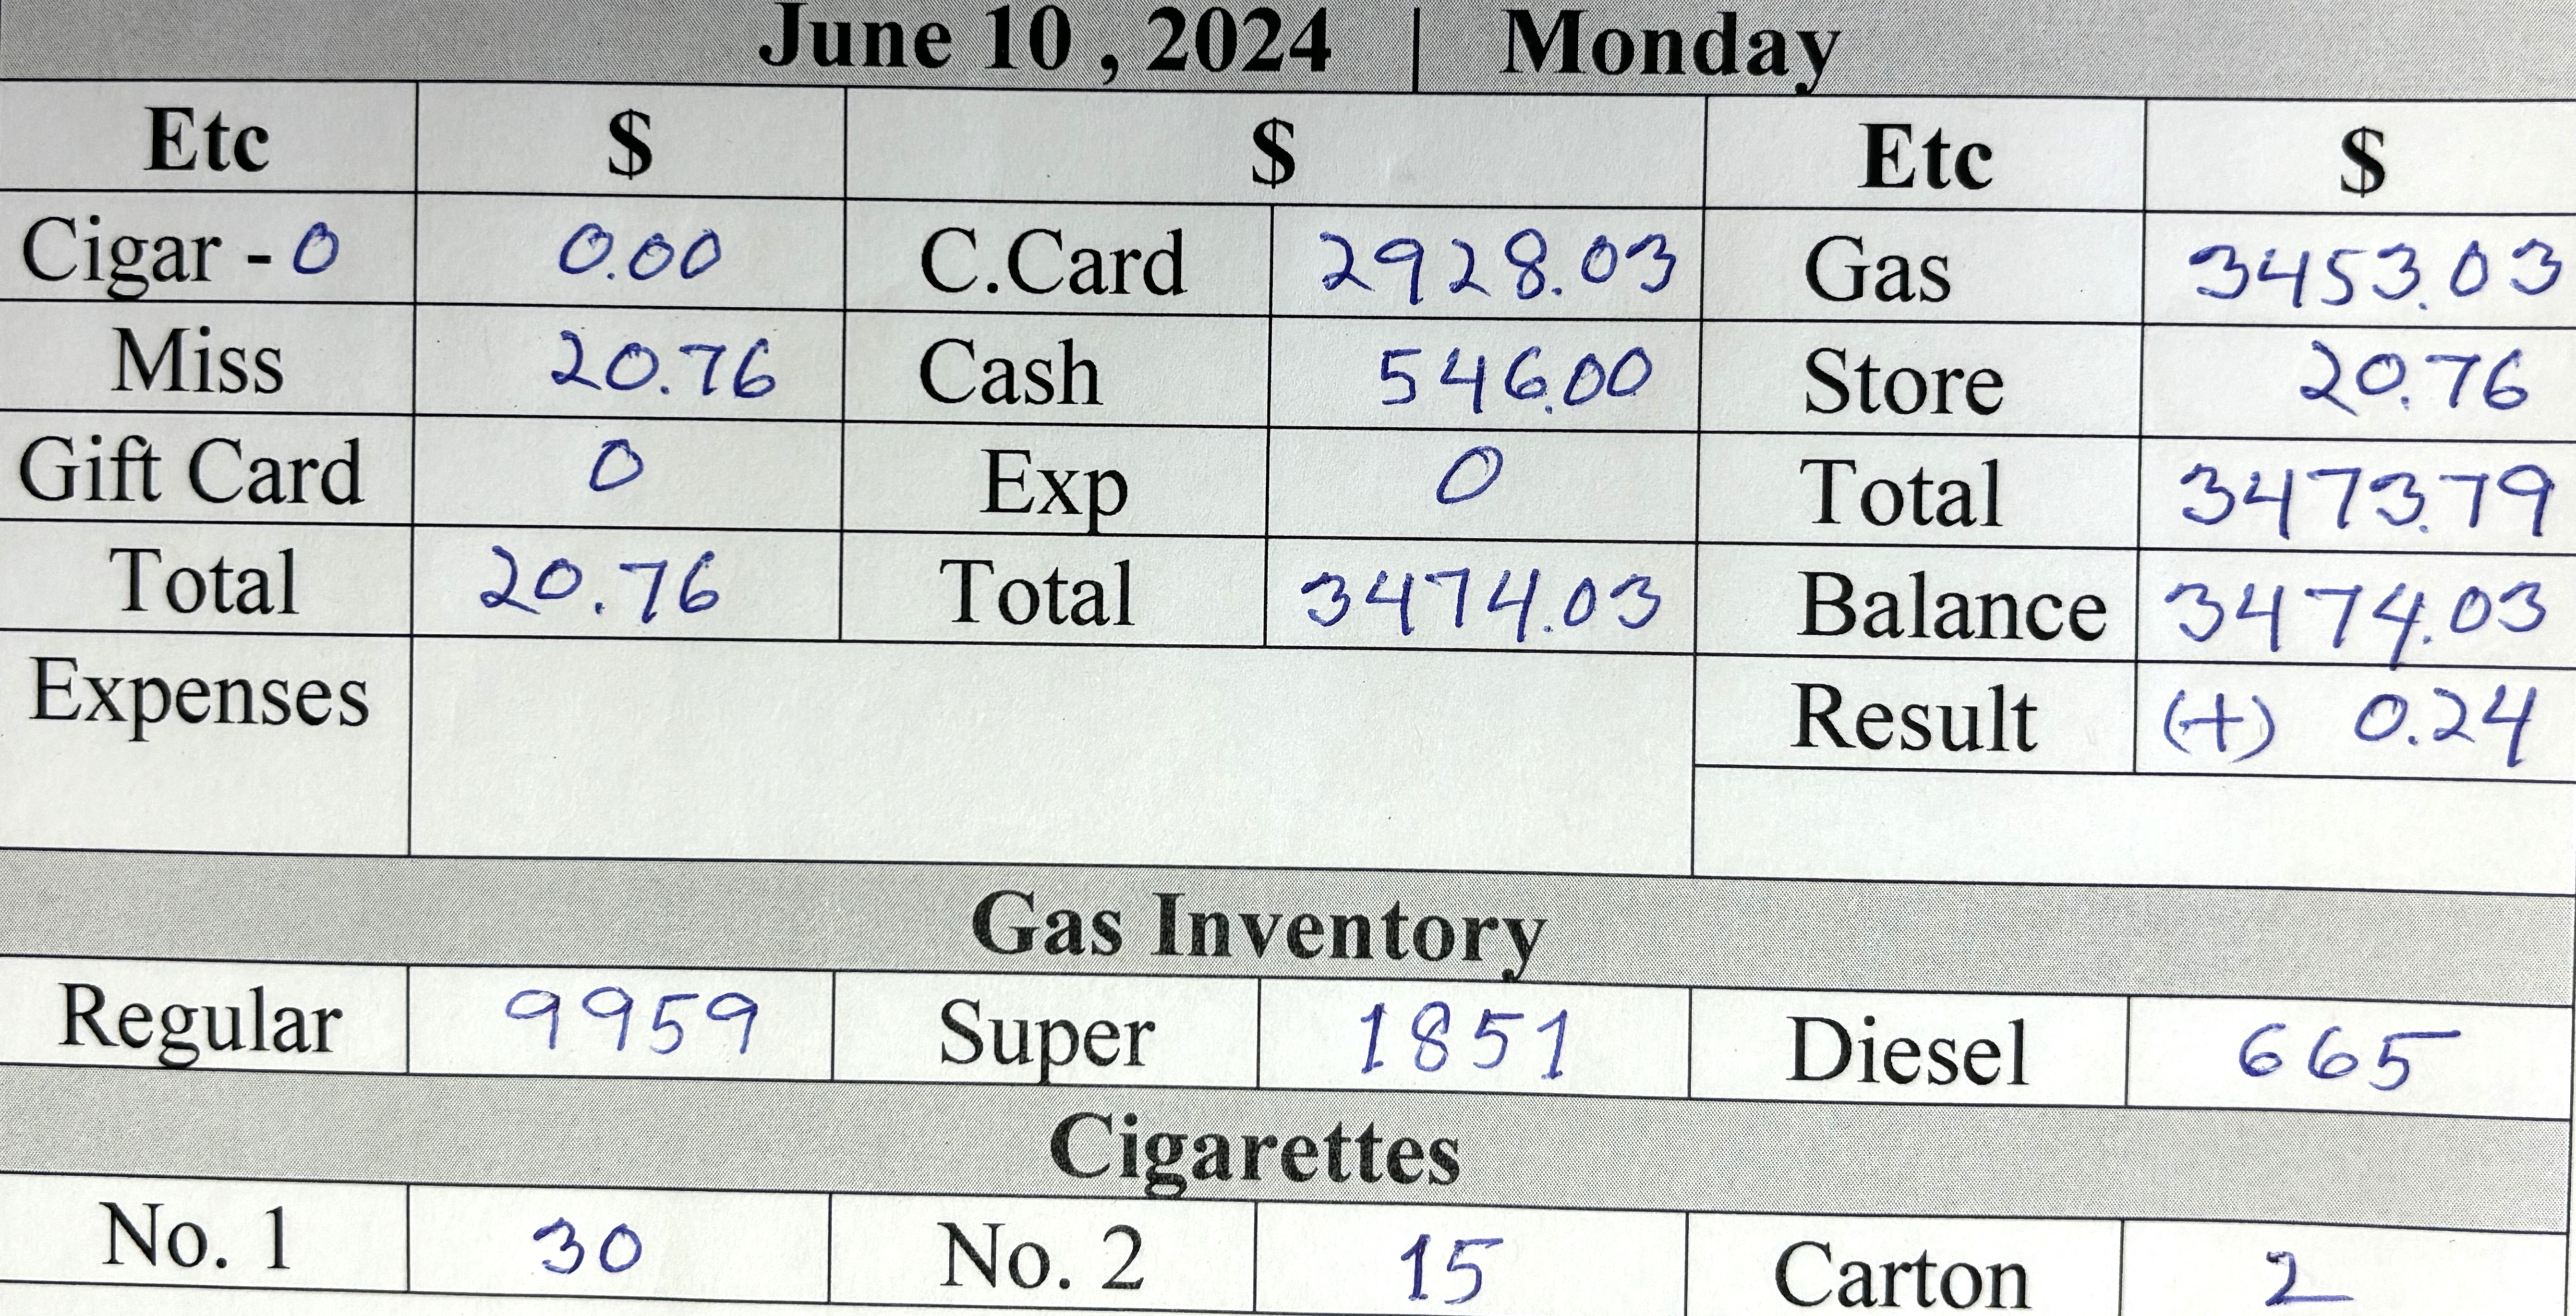 June 10 , 2024 | Monday
Etc $ $ Etc $
Cigar - 0 0.00 C.Card 2928.03 Gas 3453.03
Miss 20.76 Cash 546.00 Store 20.76
Gift Card 0 Exp 0 Total 3473.79
Total 20.76 Total 3474.03 Balance 3474.03
Expenses Result (+) 0.24
Gas Inventory
Regular 9959 Super 1851 Diesel 665
Cigarettes
No. 1 30 No. 2 15 Carton 2